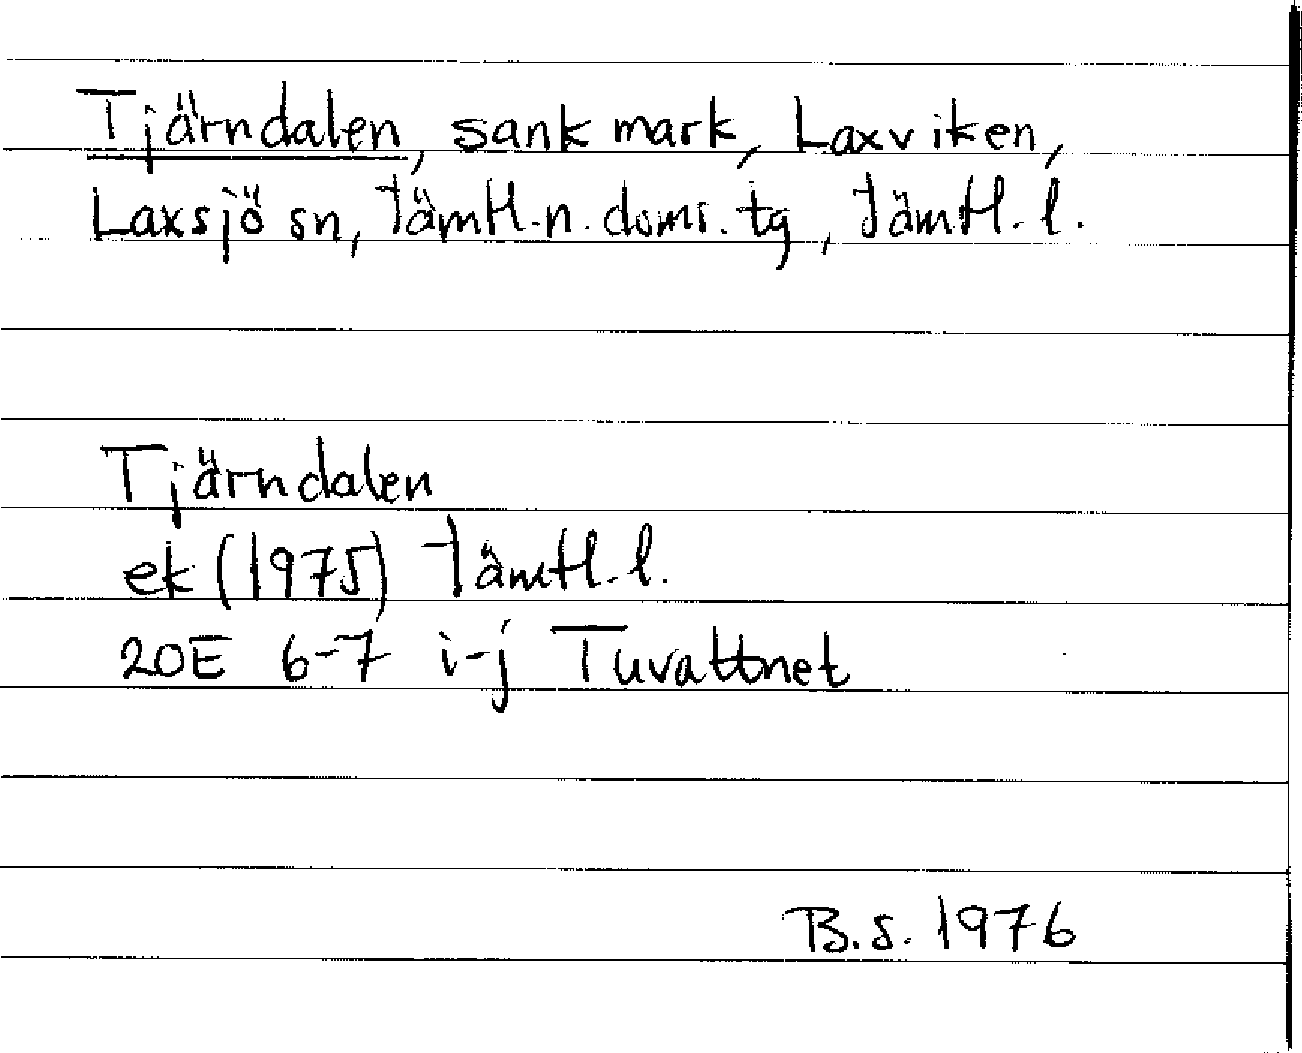 Tjärndalen, sank mark, Laxviken,
Laxsjö sn, Jämtl. n. doms. tg, Jämtl. l.
Tjärndalen
ek (1975) Jämtl. l.
20E 6-7 i-j Tuvattnet
B.S. 1976